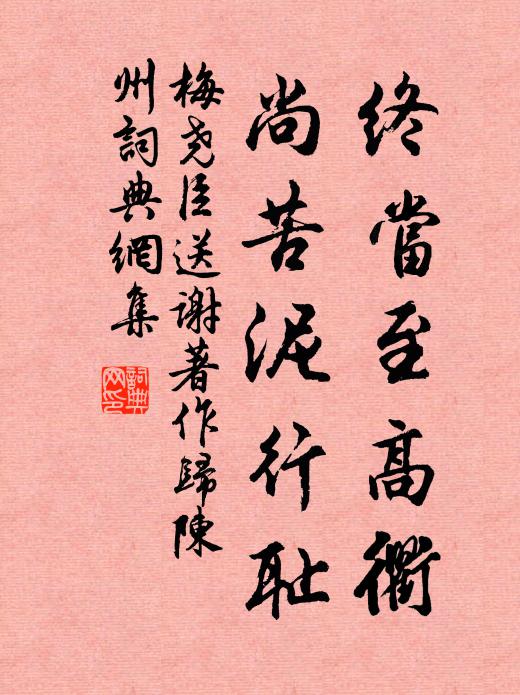 終當至高衢
尚苦泥行耻
梅堯臣送謝著作歸陳
州詞典網集
詞典
网印